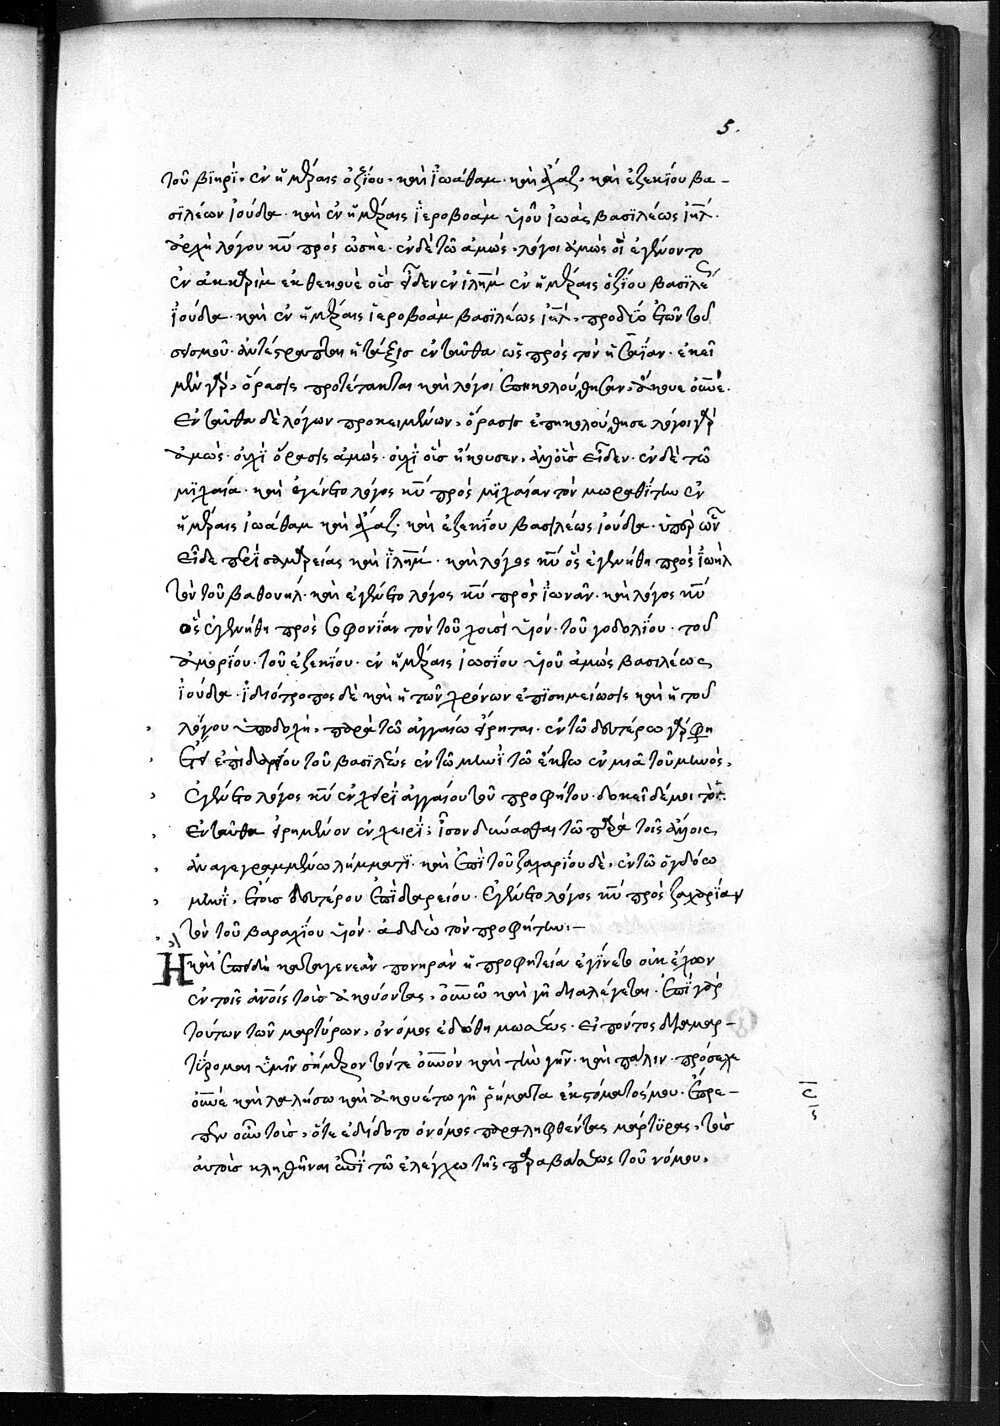 5.
τοῦ βεηρὶ· ἐν ἡμέραις ὀζίου· καὶ ἰωάθαμ· καὶ ἄχαζ· καὶ ἐζεκίου βα-
σιλέων ἰούδα· καὶ ἐν ἡμέραις ἱεροβοὰμ υἱοῦ ἰωὰς βασιλέως ἰηλ̅·
ἀρχὴ λόγου κυ̅ πρὸς ὡσηέ· ἐν δὲ τῶ ἀμώς· λόγοι ἀμὼς οἳ ἐγένοντο
ἐν ακκαριμ εκ θεκουὲ οὓς εἶδεν ἐν ἰλημ̅ ἐν ἡμέραις ὀζίου βασιλέως
ἰούδα· καὶ ἐν ἡμέραις ἱεροβοὰμ βασιλέως ἰηλ̅· πρὸ δύο ἐτῶν τοῦ
σεισμοῦ· ἀντέστραπται ἡ τάξις ἐνταῦθα ὡς πρὸς τὸν ἡσαΐαν· ἐκεῖ
μὲν γὰρ, ὅρασις προτέτακται καὶ λόγοι ἐπηκολούθησαν, ἄκουε οὐνέ·
Ενταῦθα δὲ λόγων προκειμένων, ὅρασις ἐπηκολούθησε λόγοι γὰρ
ἀμὼς· οὐχὶ ὅρασις ἀμὼς· οὐχὶ οὓς ἤκουσεν, ἀλλ' οὓς εἶδεν· ἐν δὲ τῶ
μιχαία· καὶ ἐγένετο λόγος κυ̅ πρὸς μιχαίαν τὸν μωραθίτην ἐν
ἡμέραις ἰωάθαμ καὶ ἄχαζ· καὶ ἐζεκίου βασιλέως ἰούδα· ὑπὲρ ὧν
εἶδε περὶ σαμαρείας καὶ ἰλημ̅· καὶ λόγος κυ̅ ὃς ἐγενήθη πρὸς ἰωὴλ
τὸν τοῦ βαθουὴλ· καὶ ἐγένετο λόγος κυ̅ πρὸς ἰωνᾶν· καὶ λόγος κυ̅
ὃς ἐγενήθη πρὸς σοφονίαν τὸν τοῦ χουσὶ υἱόν· τοῦ γοδολίου· τοῦ
ἀμορίου· τοῦ ἐζεκίου· ἐν ἡμέραις ἰωσίου υἱοῦ ἀμὼς βασιλέως
ἰούδα· ἰδιότροπος δὲ καὶ ἡ τῶν χρόνων ἐπισημείωσις καὶ ἡ τοῦ
λόγου ὑποδοχὴ, παρὰ τῶ ἀγγαίω εἴρηται· ἐν τῶ δευτέρω γὰρ φη
ἔτει ἐπὶ δαρείου τοῦ βασιλέως ἐν τῶ μηνὶ τῶ ἕκτω ἐν μιᾶ τοῦ μηνὸς,
ἐγένετο λόγος κυ̅ ἐν χειρὶ ἀγγαίου τοῦ προφήτου· δοκεῖ δέ μοι τὸ
ἐνταῦθα εἰρημένον ἐν χειρὶ, ἴσον δύνασθαι τῶ παρὰ τοῖς ἄλλοις
ἀναγεγραμμένω λήμματι· καὶ ἐπὶ τοῦ ζαχαρίου δὲ, ἐν τῶ ὀγδόω
μηνὶ, ἔτους δευτέρου ἐπὶ δαρείου· ἐγένετο λόγος κυ̅ πρὸς ζαχαρίαν
τὸν τοῦ βαραχίου υἱὸν· ἀδδὼ τὸν προφήτην:—
Η καὶ ἐπειδὴ κατὰ γενεὰν πονηρὰν ἡ προφητεία ἐγίνετο οὐκ ἔχων
ἐν τοῖς ἀνοις̅ τοὺς ἀκούοντας, οὐνῶ καὶ γῆ διαλέγεται· ἐπὶ γὰρ
τούτων τῶν μαρτύρων, ὁ νόμος ἐδόθη μωσέως· εἰπόντος διαμαρ-
τύρομαι ὑμῖν σήμερον τόν τε οὐνὸν καὶ τὴν γῆν· καὶ πάλιν· πρόσεχε
οὐνὲ καὶ λαλήσω καὶ ἀκουέτω γῆ ῥήματα ἐκ στόματός μου· ἔπρε-
πεν οὖν τοὺς, ὅτε ἐδίδοτο ὁ νόμος παραληφθέντας μάρτυρας, τοὺς
αὐτοὺς κληθῆναι ἐπὶ τῶ ἐλέγχω τῆς παραβάσεως τοῦ νόμου.